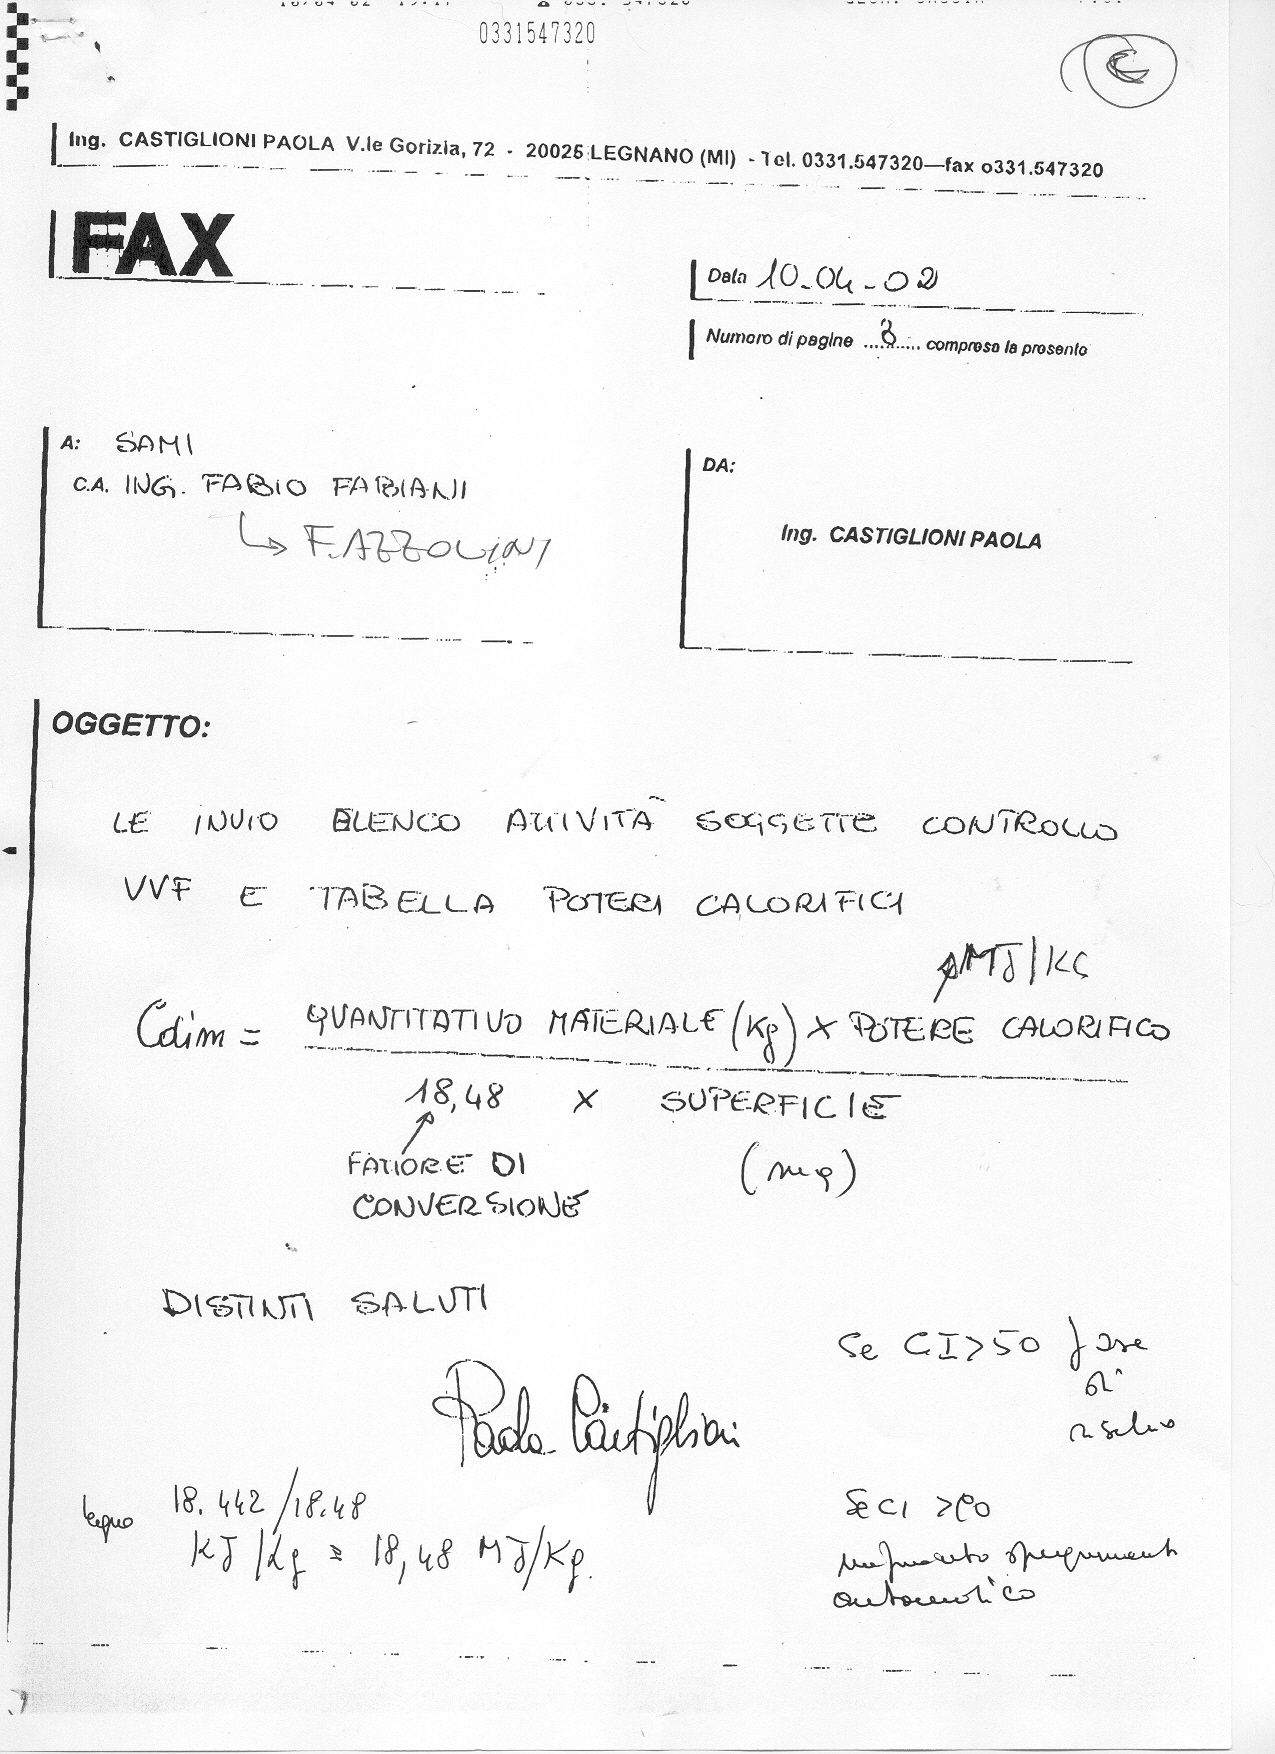 0331547320
Ing. CASTIGLIONI PAOLA V.le Gorizia, 72 - 20025 LEGNANO (MI) - Tel. 0331.547320—fax o331.547320
FAX
Data 10-04-02
Numero di pagine ........... compresa la presente
A: SAMI
C.A. ING. FABIO FABIANI
F. AZZOLINI
DA:
Ing. CASTIGLIONI PAOLA
OGGETTO:
LE INVIO ELENCO ATTIVITÀ SOGGETTE CONTROLLO
VVF E TABELLA POTERI CALORIFICI
MJ/KG
Cdim = QUANTITATIVO MATERIALE (Kg) x POTERE CALORIFICO
18,48 x SUPERFICIE
FATTORE DI
CONVERSIONE
(mq)
DISTINTI SALUTI
Paola Castiglioni
Se CI>50 fase
di
rischio
legno 18.442/18.48
KJ/Kg = 18,48 MJ/Kg.
Se CI >
impianto spegnimento
automatico